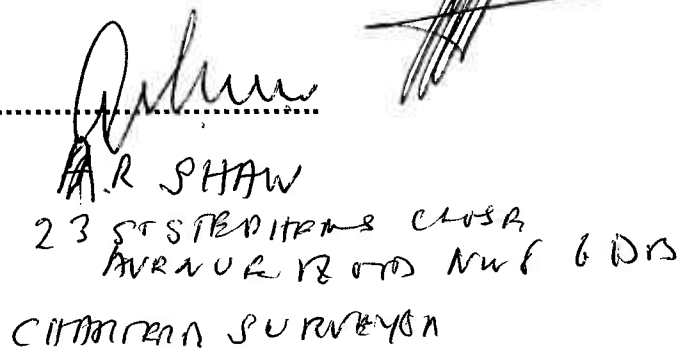 A.R SHAW
23 ST STEPHENS CLOSE
AVENUE ROAD NW8 6DB
CHARTERED SURVEYOR